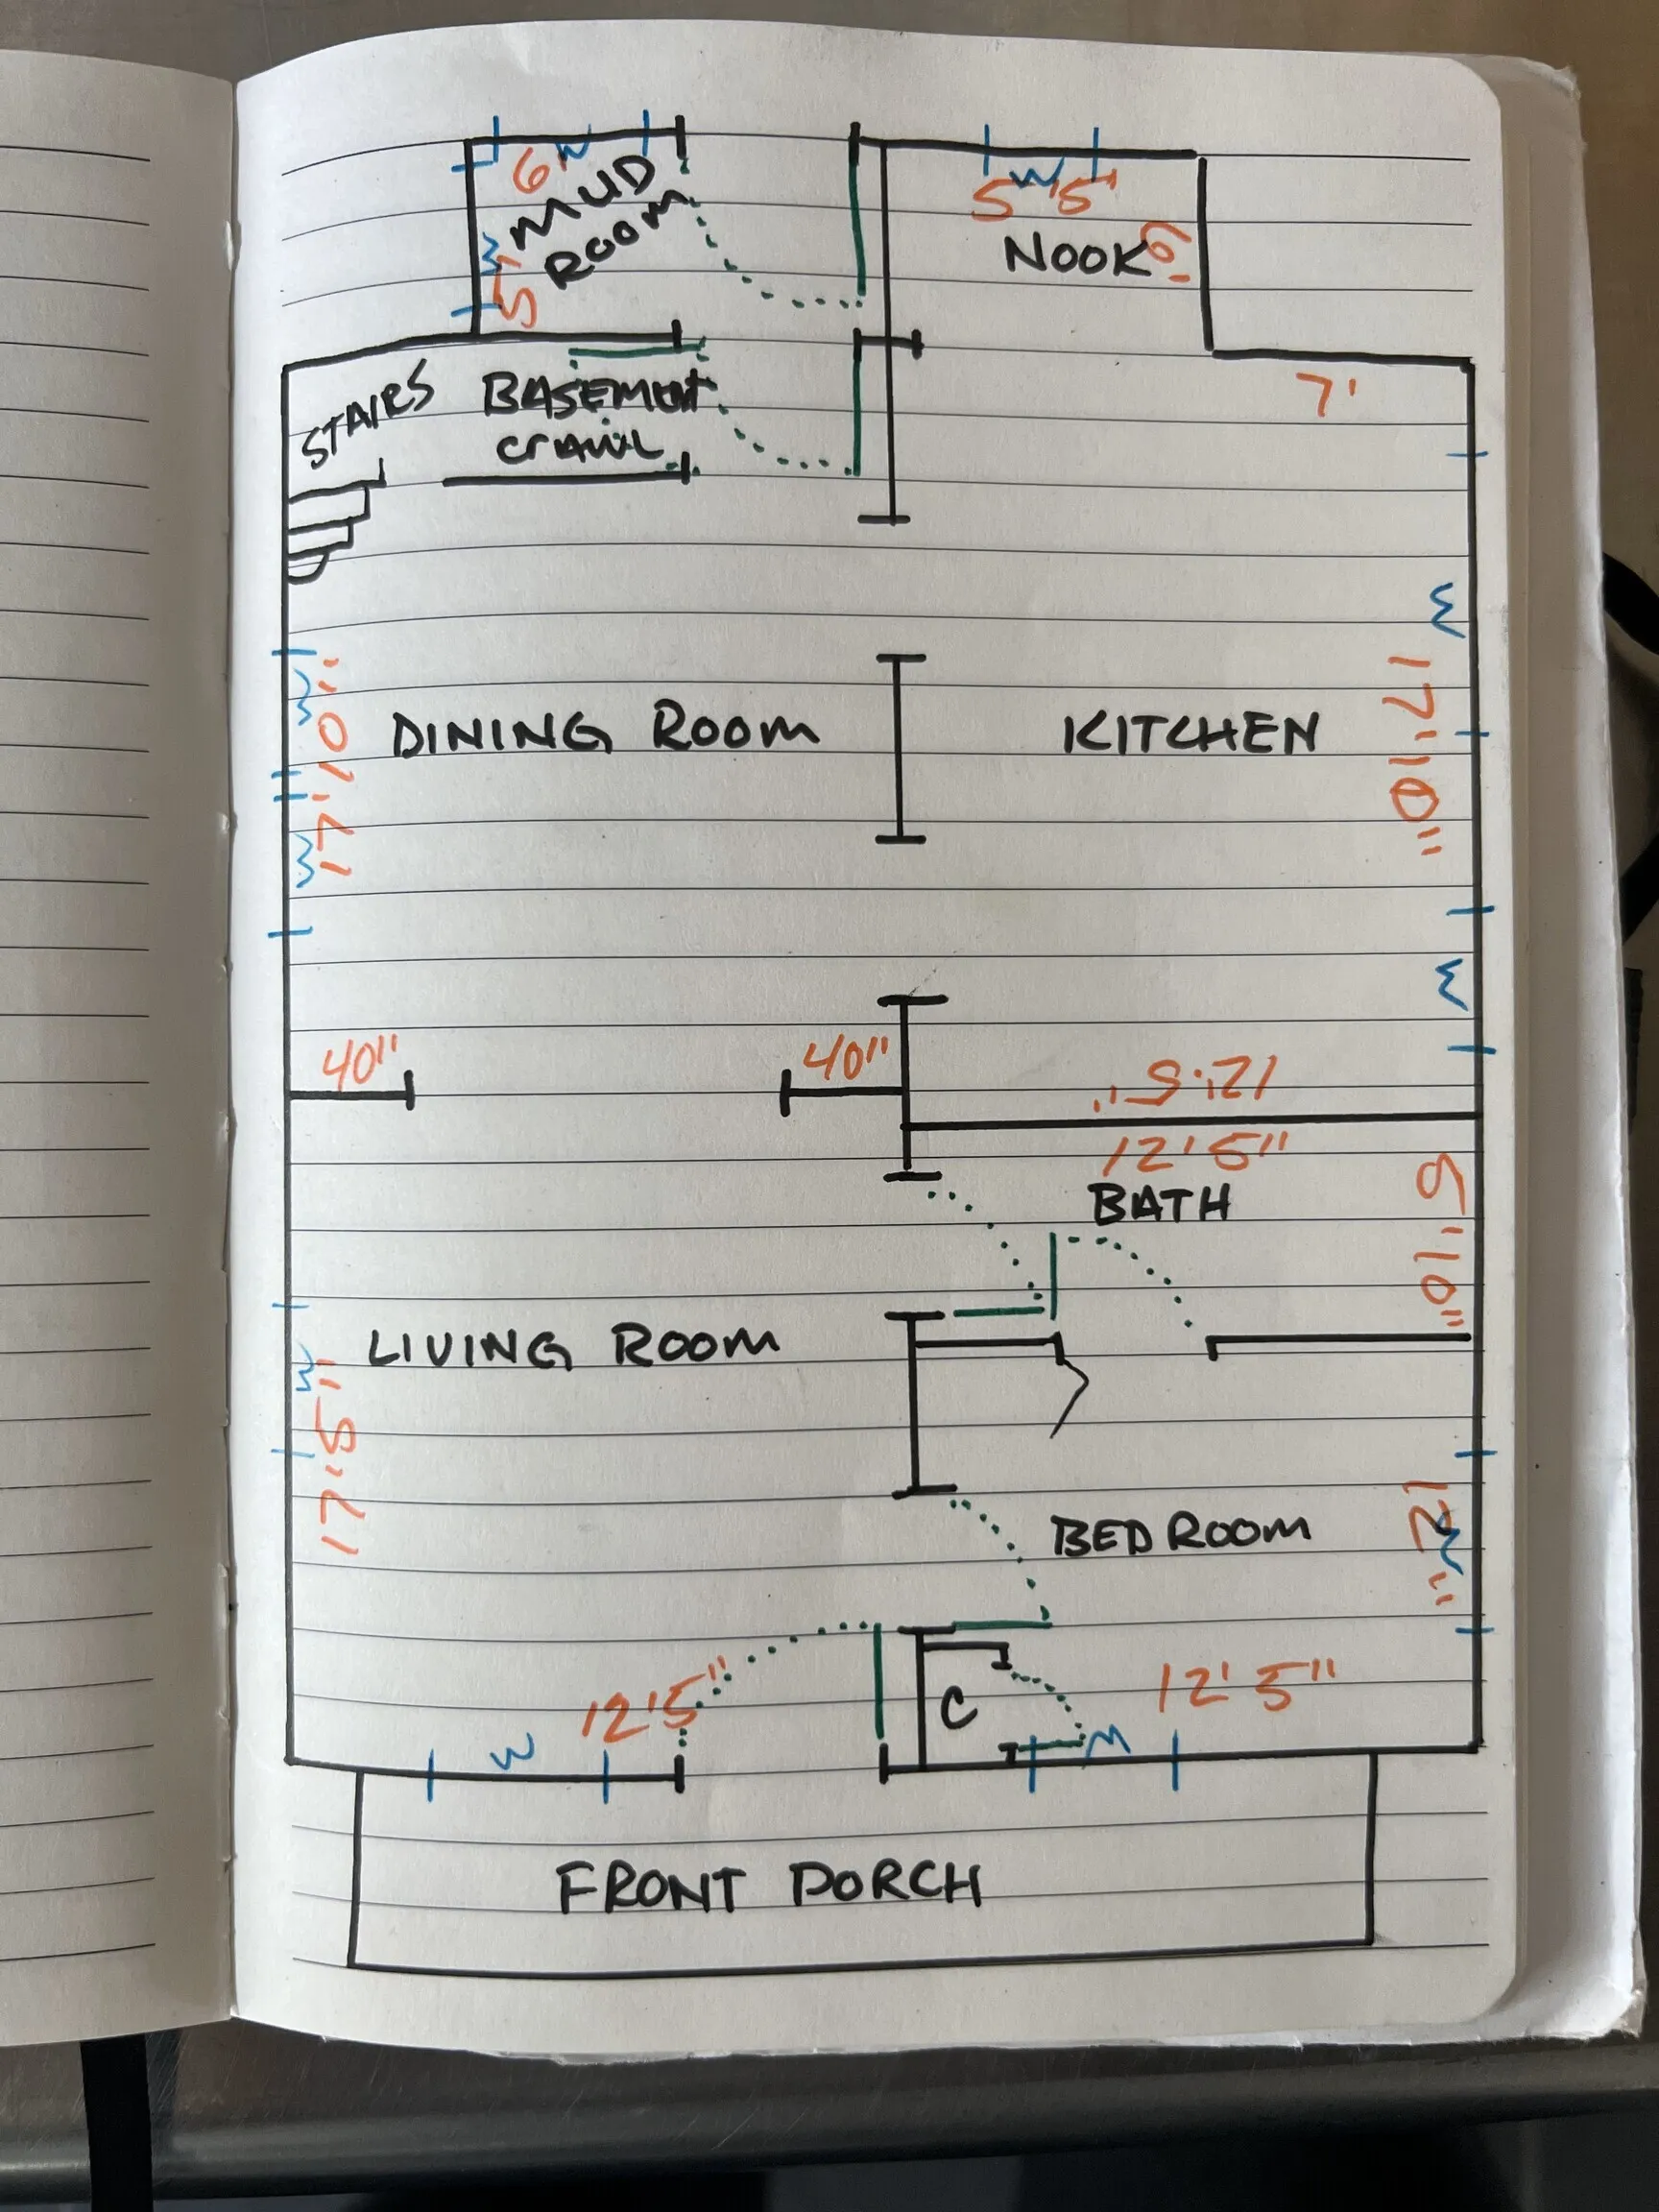 6'
W
MUD
ROOM
W
5'
5'5"
W
NOOK
6'
7'
STAIRS
BASEMENT
CRAWL
W
W
17'10"
W
DINING ROOM
KITCHEN
17'10"
W
W
40"
40"
12'5"
12'5"
BATH
5'10"
LIVING ROOM
W
17'5"
BEDROOM
12'
W
12'5"
C
12'5"
W
W
FRONT PORCH